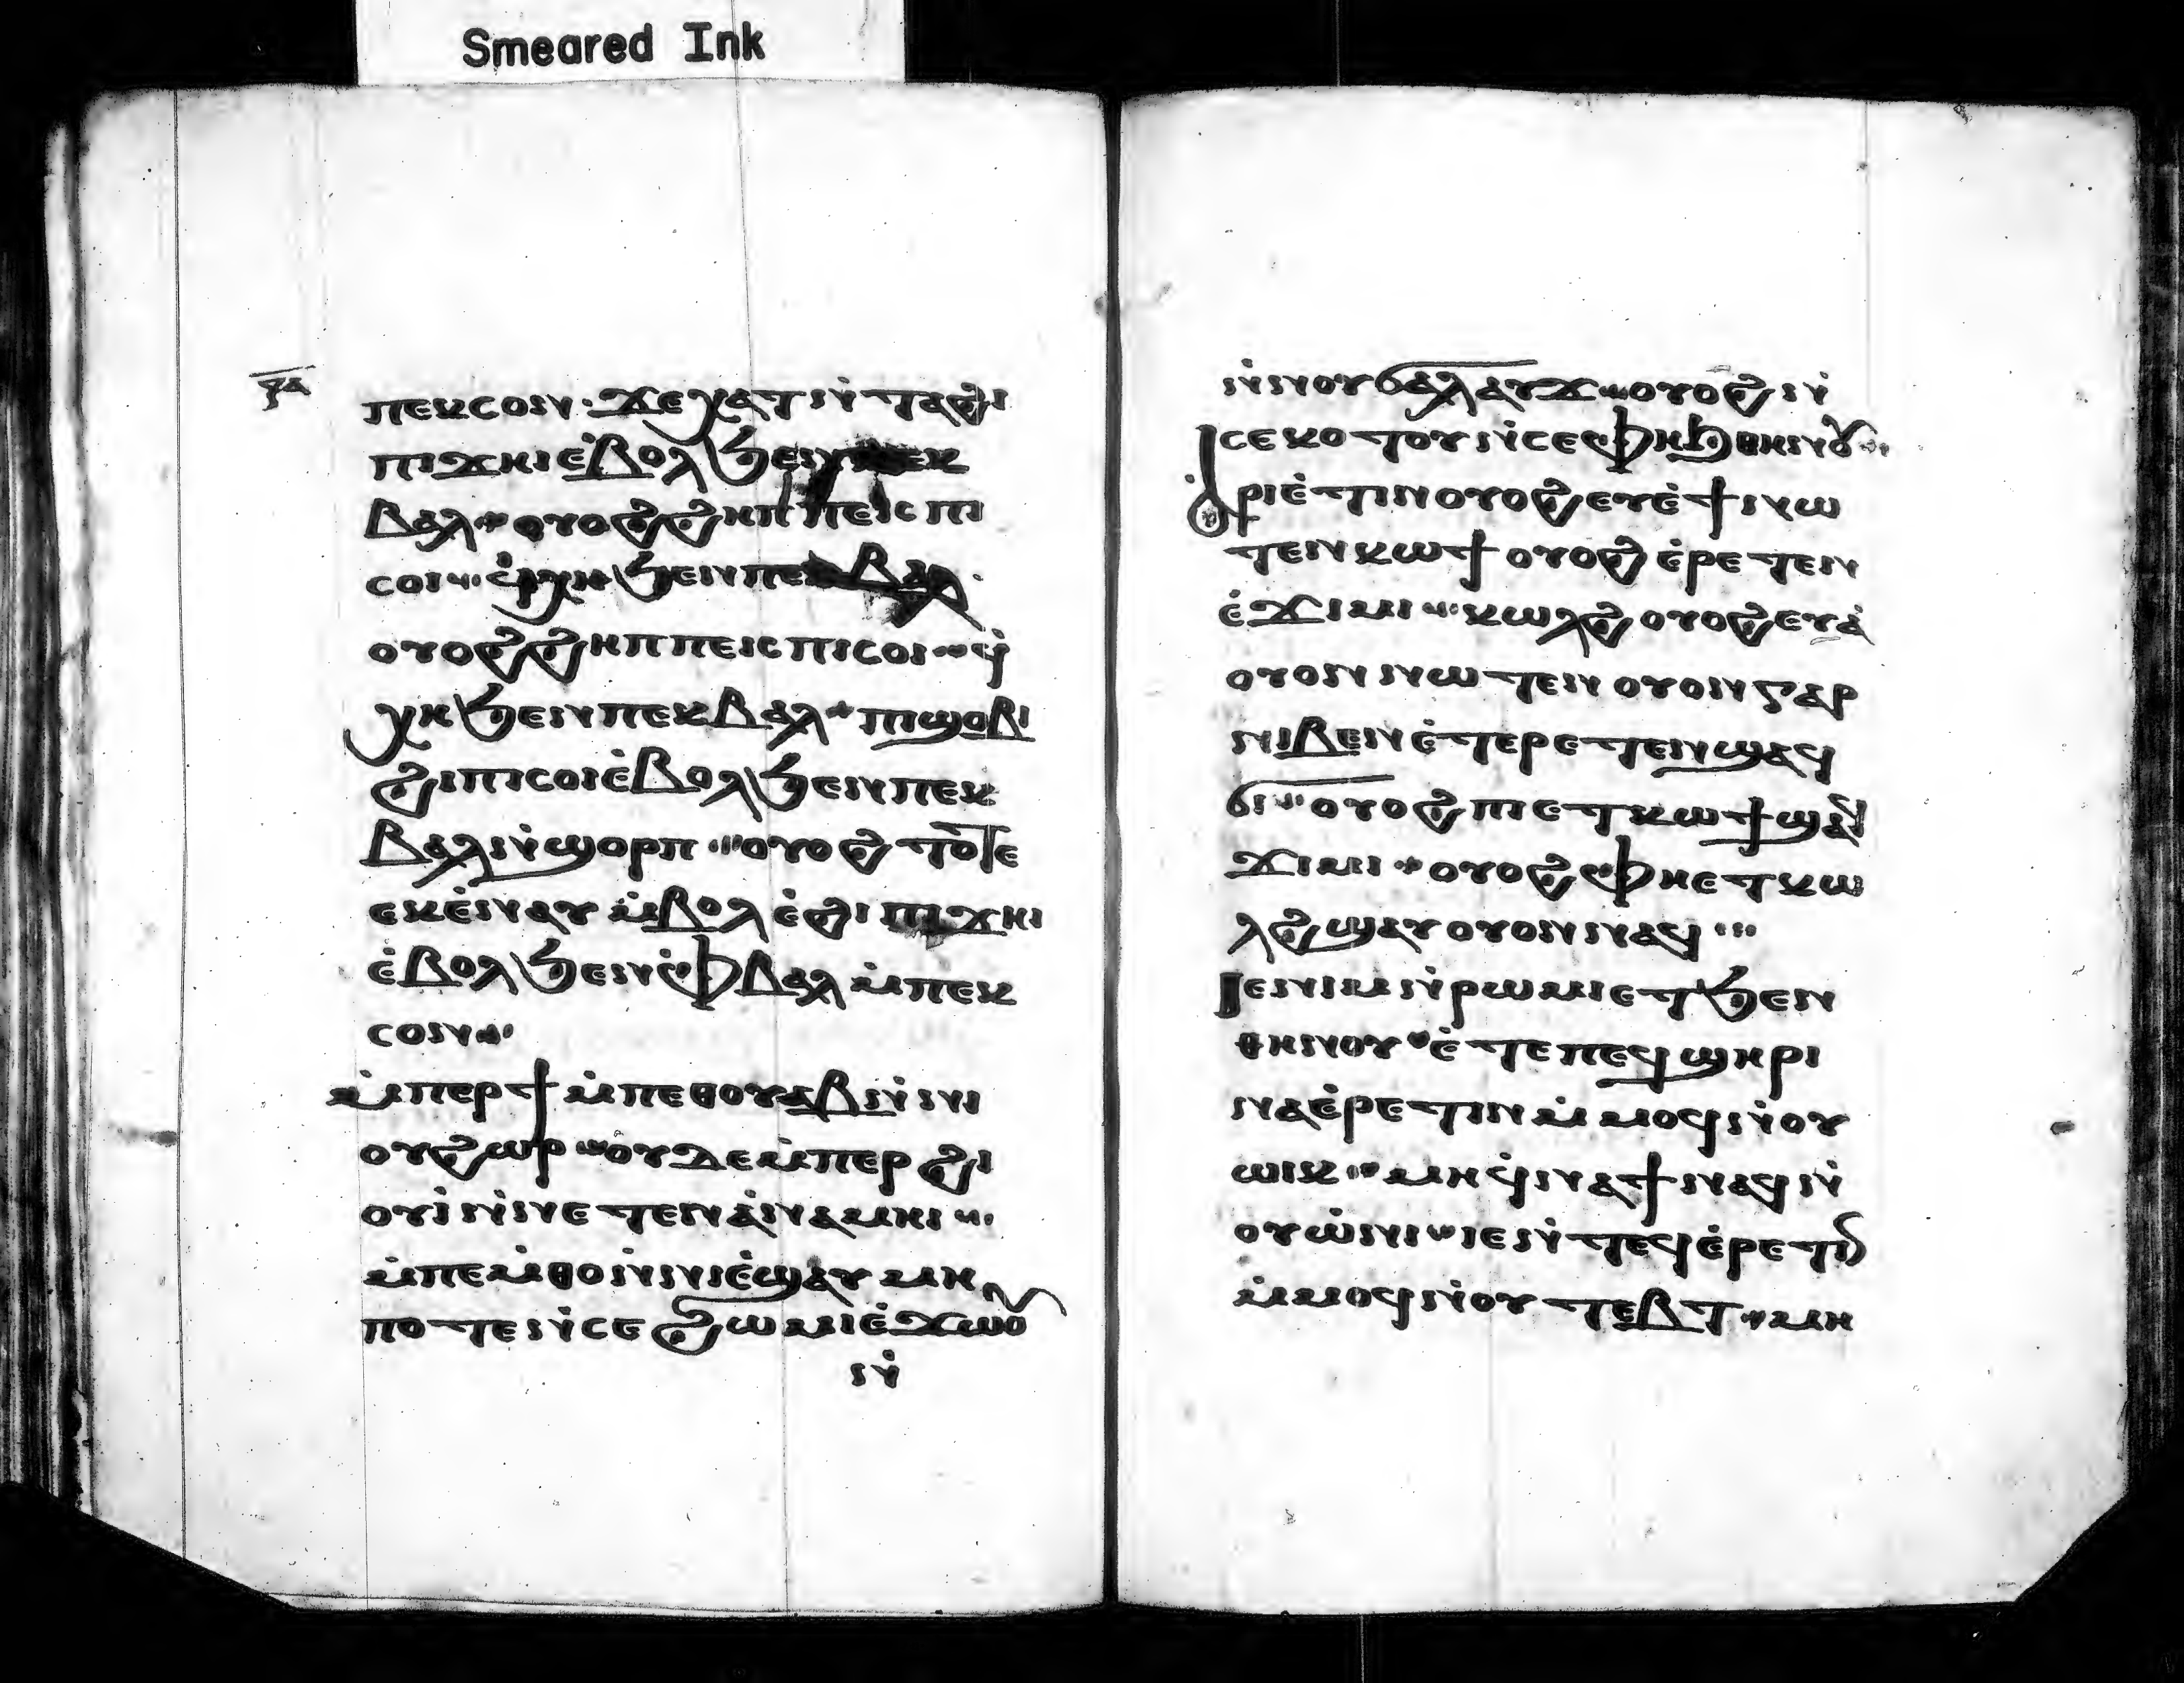 Smeared Ink
ϥⲁ
ⲡⲉⲕⲥⲟⲛ · ϫⲉ ⲭⲁⲧ ⲛ̇ⲧⲁϩⲓ
ⲡⲓϫⲏⲓ ⲉ̇ⲃⲟⲗ ϧⲉⲛ ⲡⲉⲕ
ⲃⲁⲗ ⲟⲩⲟϩ ϩⲏⲡⲡⲉ ⲓⲥ ⲡⲓ
ⲥⲟⲓ ϥ̇ⲭⲏ ϧⲉⲛ ⲡⲉⲕⲃⲁⲗ ·
ⲟⲩⲟϩ ϩⲏⲡⲡⲉ ⲓⲥ ⲡⲓⲥⲟⲓ ϥ̇
ⲭⲏ ϧⲉⲛ ⲡⲉⲕⲃⲁⲗ ⲡⲓϣⲟⲃⲓ
ϩⲓ ⲡⲓⲥⲟⲓ ⲉ̇ⲃⲟⲗ ϧⲉⲛ ⲡⲉⲕ
ⲃⲁⲗ ⲛ̇ϣⲟⲣⲡ ⲟⲩⲟϩ ⲧⲟⲧⲉ
ⲉⲕⲉ̇ⲛⲁⲩ ⲙ̇ⲃⲟⲗ ⲉ̇ϩⲓ ⲡⲓϫⲏⲓ
ⲉ̇ⲃⲟⲗ ϧⲉⲛ ⲫ̇ⲃⲁⲗ ⲙ̇ⲡⲉⲕ
ⲥⲟⲛ
ⲙ̇ⲡⲉⲣϯ ⲙ̇ⲡⲉⲑⲟⲩⲁⲃ ⲛ̇ⲛⲓ
ⲟⲩϩⲱⲣ ⲟⲩⲇⲉ ⲙ̇ⲡⲉⲣϩⲓ
ⲟⲩⲓ̇ ⲛ̇ⲛⲉⲧⲉⲛⲁ̇ⲛⲁⲙⲏⲓ
ⲙ̇ⲡⲉⲙⲑⲟ ⲛ̇ⲛⲓⲉ̇ϣⲁⲩ ⲙⲏ
ⲡⲟⲧⲉ ⲛ̇ⲥⲉϩⲱⲙⲓ ⲉ̇ϫⲱⲟ
ⲛ̇
ⲛ̇ⲛⲟⲩϭⲁⲗⲁⲩϫ ⲟⲩⲟϩ ⲛ̇
ⲥⲉⲕⲟⲧⲟⲩ ⲛ̇ⲥⲉⲫⲏϧ ⲑⲏⲛⲟⲩ
ⲁ̇ⲣⲓⲉ̇ⲧⲓⲛ ⲟⲩⲟϩ ⲉⲩⲉ̇ϯ ⲛⲱ
ⲧⲉⲛ ⲕⲱϯ ⲟⲩⲟϩ ⲉ̇ⲣⲉⲧⲉⲛ
ⲉ̇ϫⲓⲙⲓ ⲕⲱⲗϩ ⲟⲩⲟϩ ⲉⲩⲁ̇
ⲟⲩⲟⲛ ⲛⲱⲧⲉⲛ ⲟⲩⲟⲛ ⲅⲁⲣ
ⲛⲓⲃⲉⲛ ⲉ̇ⲧⲉⲣⲉⲧⲉⲛ ϣⲁϥ
ϭⲓ ⲟⲩⲟϩ ⲡⲓⲉⲧⲕⲱϯ ϣⲁϥ
ϫⲓⲙⲓ ⲟⲩⲟϩ ⲫⲏⲉⲧⲕⲱ
ⲗϩ ϣⲁⲩⲟⲩⲟⲛ ⲛⲁϥ
ⲓⲉ ⲛⲓⲙ ⲛ̇ⲣⲱⲙⲓ ⲉⲧϧⲉⲛ
ⲑⲏⲛⲟⲩ ⲉ̇ⲧⲉ ⲡⲉϥϣⲏⲣⲓ
ⲛⲁⲉ̇ⲣⲉⲧⲓⲛ ⲙ̇ⲙⲟϥ ⲛ̇ⲟⲩ
ⲱⲓⲕ ⲙⲏ ϥ̇ⲛⲁϯ ⲛⲁϥ ⲛ̇
ⲟⲩⲱ̇ⲛⲓ ⲓⲉ ⲛ̇ⲧⲉϥⲉ̇ⲣⲉⲧⲓⲛ
ⲙ̇ⲙⲟϥ ⲛ̇ⲟⲩⲧⲉⲃⲧ ⲙⲏ